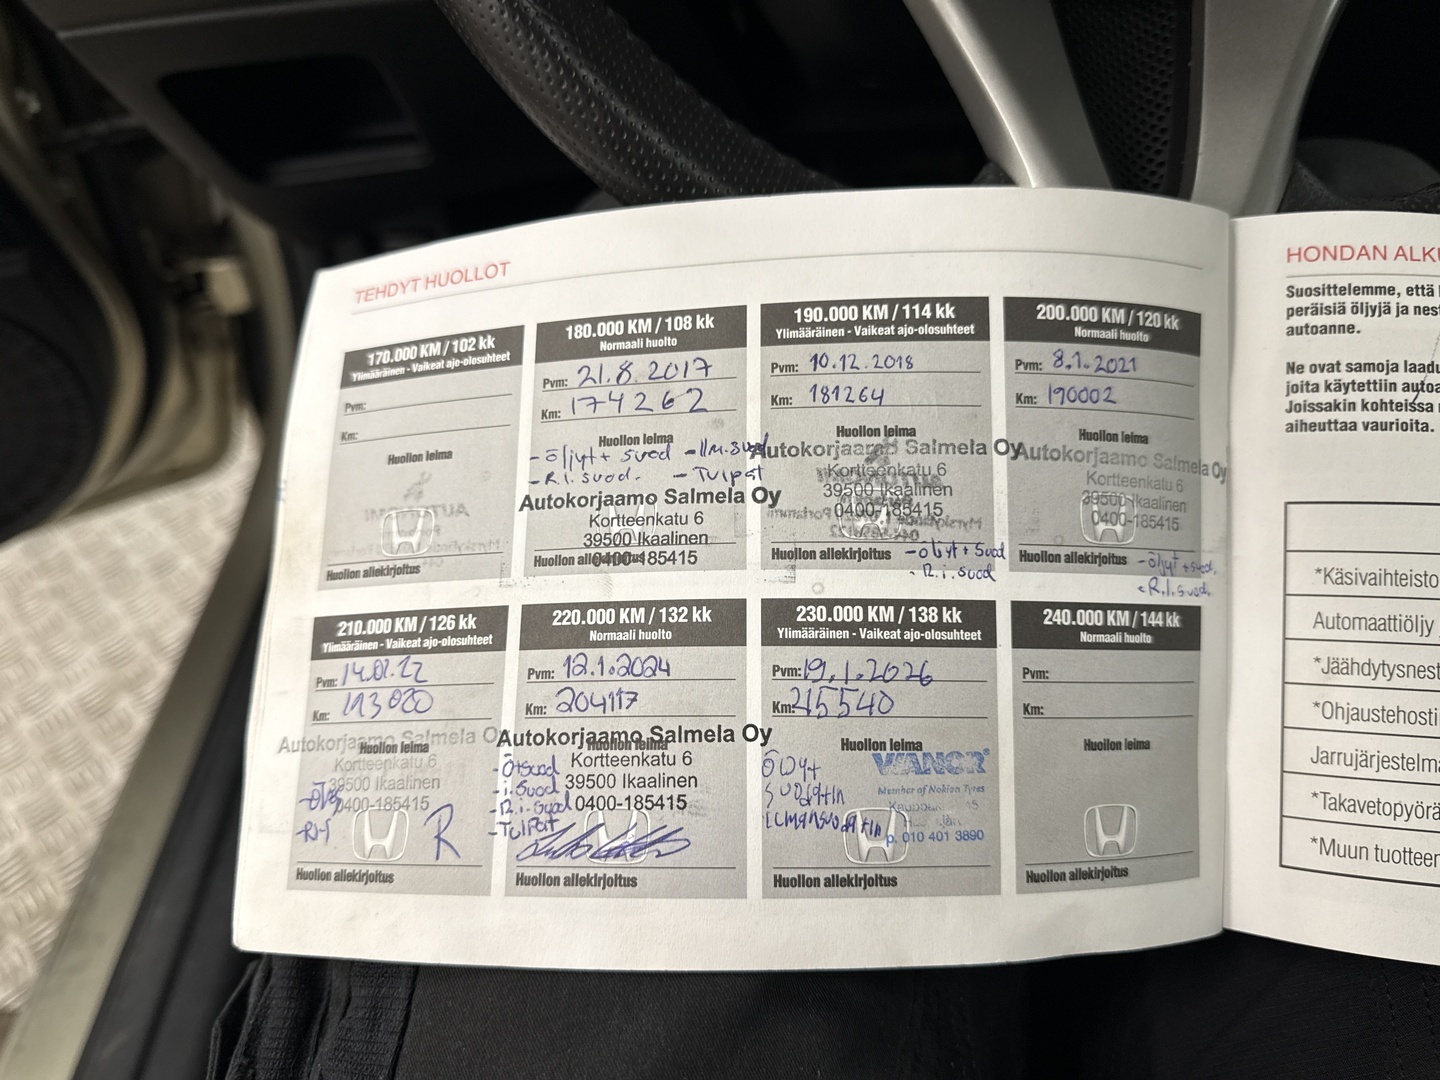 TEHDYT HUOLLOT
170.000 KM / 102 kk
Ylimääräinen - Vaikeat ajo-olosuhteet
Pvm:
Km:
Huollon leima
Huollon allekirjoitus
180.000 KM / 108 kk
Normaali huolto
Pvm: 21.8.2017
Km: 174262
Huollon leima
- öljyt + suod - Ilm.suod
- R.i. suod. - Tulpat
Autokorjaamo Salmela Oy
Kortteenkatu 6
39500 Ikaalinen
0400-185415
Huollon allekirjoitus
190.000 KM / 114 kk
Ylimääräinen - Vaikeat ajo-olosuhteet
Pvm: 10.12.2018
Km: 181264
Huollon leima
Autokorjaamo Salmela Oy
Kortteenkatu 6
39500 Ikaalinen
0400-185415
Huollon allekirjoitus
- öljyt + suod
- R.i. suod
200.000 KM / 120 kk
Normaali huolto
Pvm: 8.1.2021
Km: 190002
Huollon leima
Autokorjaamo Salmela Oy
Kortteenkatu 6
39500 Ikaalinen
0400-185415
Huollon allekirjoitus
- öljyt + suod.
- R.i. suod.
210.000 KM / 126 kk
Ylimääräinen - Vaikeat ajo-olosuhteet
Pvm: 14.01.22
Km: 193020
Huollon leima
Autokorjaamo Salmela O
Kortteenkatu 6
39500 Ikaalinen
0400-185415
R
Huollon allekirjoitus
220.000 KM / 132 kk
Normaali huolto
Pvm: 12.1.2024
Km: 204117
Huollon leima
Autokorjaamo Salmela Oy
Kortteenkatu 6
39500 Ikaalinen
0400-185415
- Ö+suod
- i.suod
- R.i.suod
- Tulpat
Huollon allekirjoitus
230.000 KM / 138 kk
Ylimääräinen - Vaikeat ajo-olosuhteet
Pvm: 19.1.2026
Km: 215540
Huollon leima
VIANOR
Member of Nokian Tyres
p. 010 401 3890
Huollon allekirjoitus
240.000 KM / 144 kk
Normaali huolto
Pvm:
Km:
Huollon leima
Huollon allekirjoitus
HONDAN ALKU
Suosittelemme, että
peräisiä öljyjä ja nest
autoanne.
Ne ovat samoja laadu
joita käytettiin autoa
Joissakin kohteissa
aiheuttaa vaurioita.
*Käsivaihteisto
Automaattiöljy
*Jäähdytysnest
*Ohjaustehosti
Jarrujärjestelmä
*Takavetopyörä
*Muun tuotteen